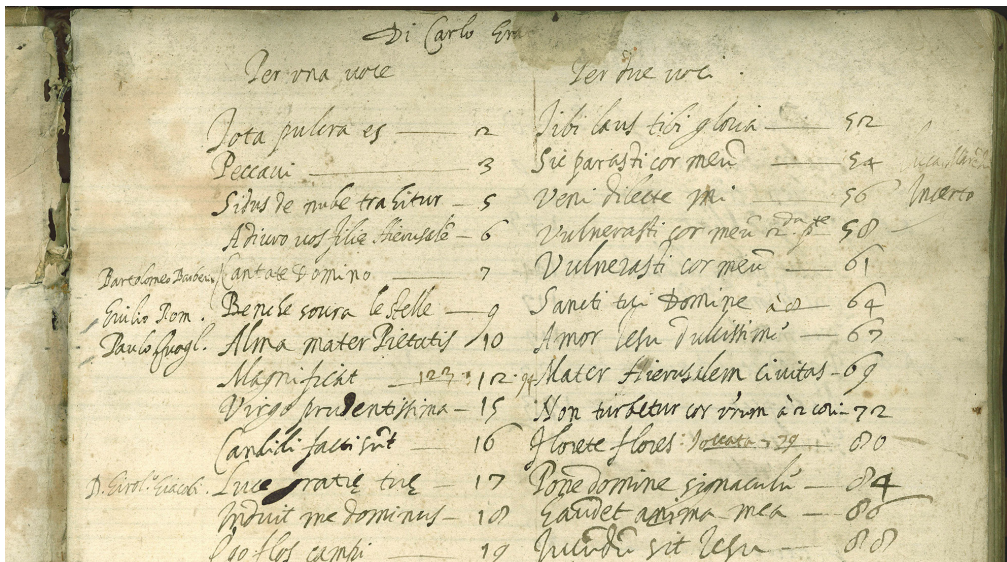 Di Carlo
Per una voce
Tota pulcra es 2
Peccaui 3
Sidus de nube trahitur 5
Adiuro uos filie Hierusalē 6
Bartolomeo Cantate Domino 7
Giulio Rom. Benche soura le stelle 9
Paulo Quagl. Alma mater Pietatis 10
Magnificat 123 12
Virgo prudentissima 15
Candidi facti sūt 16
D. Girol.º Giacobi. Luce gratię tuę 17
Induit me dominus 18
Ego flos campi 19
Per due uoci
Tibi laus tibi gloria 52
Sic parasti cor meū 54
Veni dilecte mi 56
Incerto
Vulnerasti cor meū 2.da pte 58
Vulnerasti cor meū 61
Sancti tui Domine à 2 64
Amor Iesu dulcissime 67
Mater Hierusalem ciuitas 69
Non turbetur cor vrūm à 2 72
Florete flores: Toccata 80
Pone domine signaculū 84
Gaudet anima mea 86
Iucundū sit Iesu 88